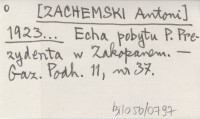 o [ZACHEMSKI Antoni]
1923... Echa pobytu P. Pre-
zydenta w Zakopanem. —
Gaz. Podh. 11, nr 37.